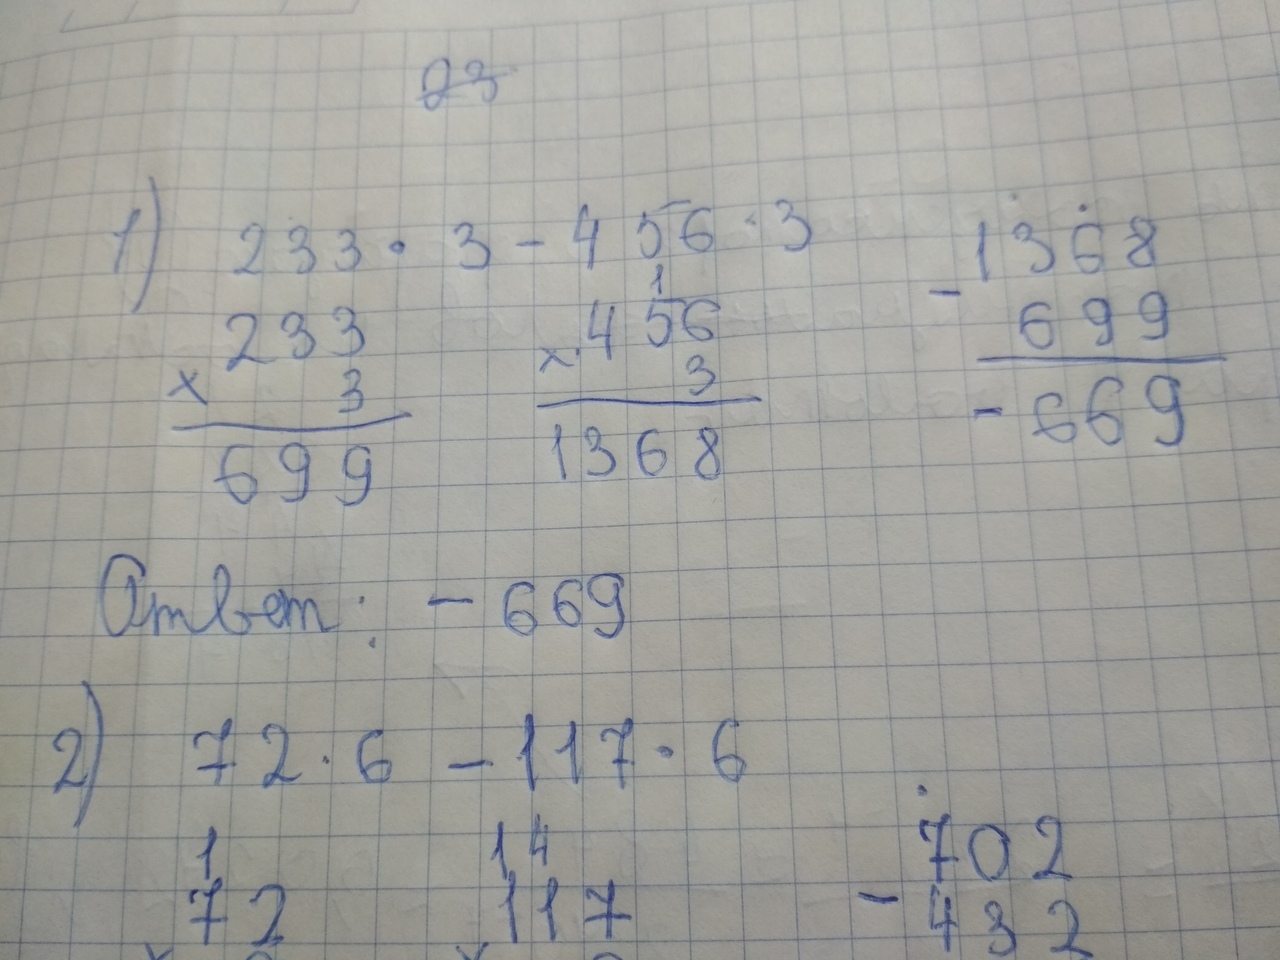 ДЗ
1) 233 · 3 - 456 · 3
233
× 3
699
1
× 456
3
1368
- 1368
699
- 669
Ответ: - 669
2) 72 · 6 - 117 · 6
1
72
14
117
- 702
432